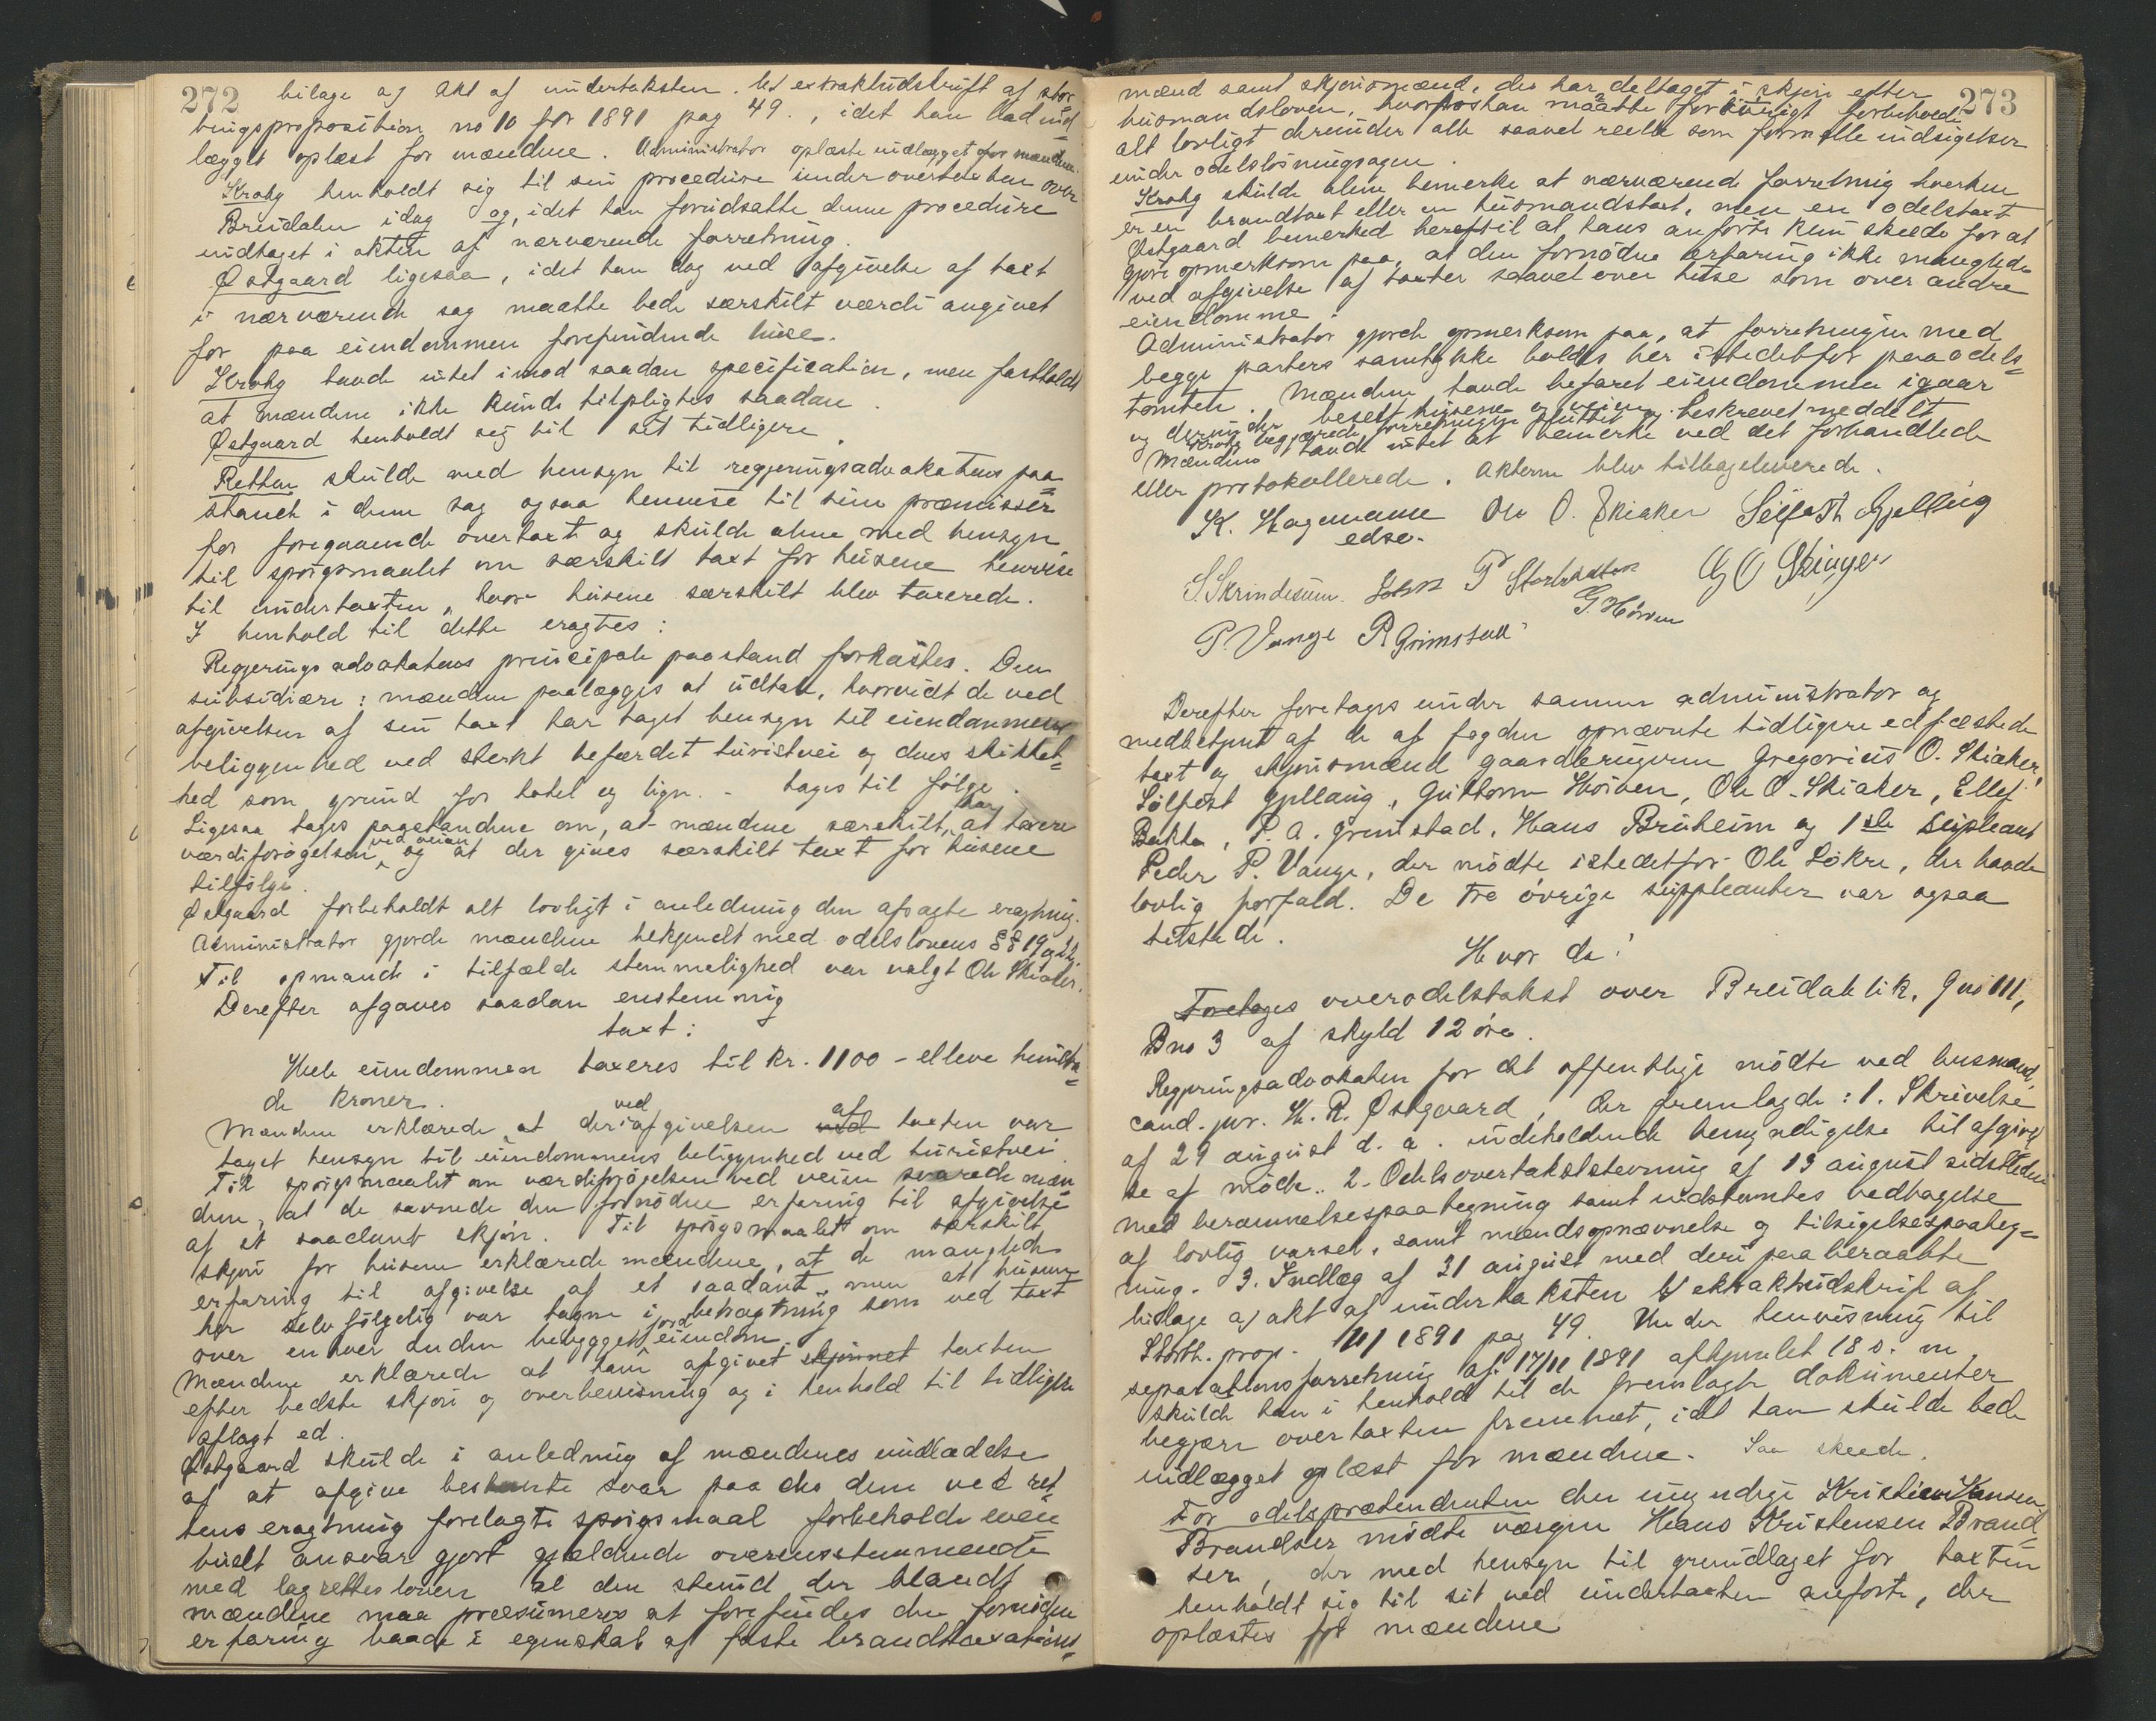 272
bilage a) akt af undertaksten. b) extraktudskrift af stor-
tingsproposition no 10 for 1891 pag 49., idet han bad ind-
lægget oplæst for mændene. Administrator oplæste indlægget for mændene.
Krohg henholdt sig til sin procedure under overtaxten over
Breidalen idag og, idet han forudsatte denne procedure
indtaget i akten af nærværende forretning.
Østgaard ligesaa, idet han dog ved afgivelse af taxt
i nærværende sag maatte bede særskilt værdi angivet
for paa eiendommen forefindende huse.
Krohg havde intet imod saadan specification, men fastholdt
at mændene ikke kunde tilpligtes saadan.
Østgaard henholdt sig til sit tidligere.
Retten skulde med hensyn til regjeringsadvokatens paa-
stand i denne sag ogsaa henvise til sine præmisser
for foregaaende overtaxt og skulde alene med hensyn
til spørgsmaalet om særskilt taxt for husene henvise
til undertaxten, hvor husene særskilt blev taxerede.
I henhold til dette eragtes:
Regjeringsadvokatens principale paastand forkastes. Den
subsidiære: mændene paalægges at udtale, hvorvidt de ved
afgivelsen af sin taxt har taget hensyn til eiendommens
beliggenhed ved sterkt befærdet turistvei og dens skikket-
hed som grund for hotel og lign. - tages til følge.
Ligesaa tages paastandene om, at mændene særskilt har at taxere
værdiforøgelsen ved veien og at der gives særskilt taxt for husene
tilfølge.
Østgaard forbeholdt alt lovligt i anledning den afsagte eragtning.
Administrator gjorde mændene bekjendt med odelslovens §§ 19 og 24.
Til opmand i tilfælde stemmelighed var valgt Ole Skiaker.
Derefter afgaves saadan enstemmig
taxt:
Hele eiendommen taxeres til kr. 1100 - elleve hundre-
de kroner.
Mændene erklærede at der ved afgivelsen af taxten var
taget hensyn til eiendommens beliggenhed ved turistvei.
Til spørgsmaalet om værdiforøgelsen ved veien svarede mæn-
dene, at de savnede den fornødne erfaring til afgivelse
af et saadant skjøn. Til spørgsmaalet om særskilt
skjøn for husene erklærede mændene, at de manglede
erfaring til afgivelse af et saadant, men at husene
her selvfølgelig var tagne i betragtning som ved taxt
over enhver anden bebygget jordeiendom.
Mændene erklærede at have afgivet skjønnet taxten
efter bedste skjøn og overbevisning og i henhold til tidligere
aflagt ed.
Østgaard skulde i anledning af mændenes undladelse
af at afgive bestemte svar paa de dem ved ret-
tens eragtning forelagte spørgsmaal forbeholde even-
tuelt ansvar gjort gjældende overensstemmende
med lagrettesloven al den stund der blandt
mændene maa præsumeres at forefindes den fornødne
erfaring baade i egenskab af faste brandtaxations-
273
mænd samt skjønsmænd, der har deltaget i skjøn efter
husmandsloven, hvorfor han maatte forbeholde
alt lovligt derunder alle saavel reelle som formelle indsigelser
under odelsløsningsagen.
Krohg skulde alene bemerke at nærværende forretning hverken
er en brandtaxt eller en husmandstaxt, men en odelstaxt
Østgaard bemerked hertil at hans anførte kun skeede for at
gjøre opmerksom paa, at den fornødne erfaring ikke manglede
ved afgivelse af taxter saavel over huse som over andre
eiendomme.
Administrator gjorde opmerksom paa, at forretningen med
begge parters samtykke holdes her istedetfor paa odels-
tomten. Mændene havde befaret eiendommen igaar
og derunder beseet husene og veien.
Krohg begjærede forretningen sluttet og beskrevet meddelt
Mændene havde intet at bemerke ved det forhandlede
eller protokollerede. Akterne blev tilbageleverede.
K. Hagemann Ole O. Skiaker Sølfest Gjelling
edsv.
S. Skrindesum. John P Storbraaten G O Skiager
G. Hörven
P Vange P Grimstad
Derefter foretages under samme administrator og
medbetjent af de af fogden opnævnte tidligere edfæstede
taxt og skjønsmænd gaardbrugerne Gregorius O. Skiaker,
Sølfest Gjellaug, Guttorm Hörven, Ole O. Skiaker, Ellef
Bakke, P. A. Grimstad, Hans Bruheim og 1ste supleant
Peder P. Vange, der mødte istedetfor Ole Løkre, der havde
lovlig forfald. De tre øvrige suppleanter var ogsaa
tilstede.
Hvor da:
Foretages overodelstakst over Breidablik, Gno 111,
Bno 3 af skyld 12 øre.
Regjeringsadvokaten for det offentlige mødte ved husmand,
cand. jur. H. R. Østgaard, der fremlagde: 1. Skrivelse
af 29 august d. a. indeholdende bemyndigelse til afgivel-
se af møde. 2. Odelsovertakststevning af 13 august sidstleden
med berammelsespaategning samt indstevntes vedtagelse
af lovlig varsel, samt mandsopnævnelse og tilsigelsespaateg-
ning. 3. Indlæg af 31 august med deri paaberaabte
bilage a) akt af undertaksten b) ekstraktudskrift af
Storth. prop. 10/ 1891 pag 49. Under henvisning til
separationsforretning af 17/11 1891 afhjemlet 18 s. m.
skulde han i henhold til de fremlagte dokumenter
begjære overtaxten fremmet, idet han skulde bede
indlægget oplæst for mændene. Saa skeede.
For odelsprætendenten den umyndige Kristian Hansen
Brandser mødte værgen Hans Kristensen Brand-
ser, der med hensyn til grundlaget for taxten
henholdt sig til sit ved undertaxten anførte, der
oplæstes for mændene